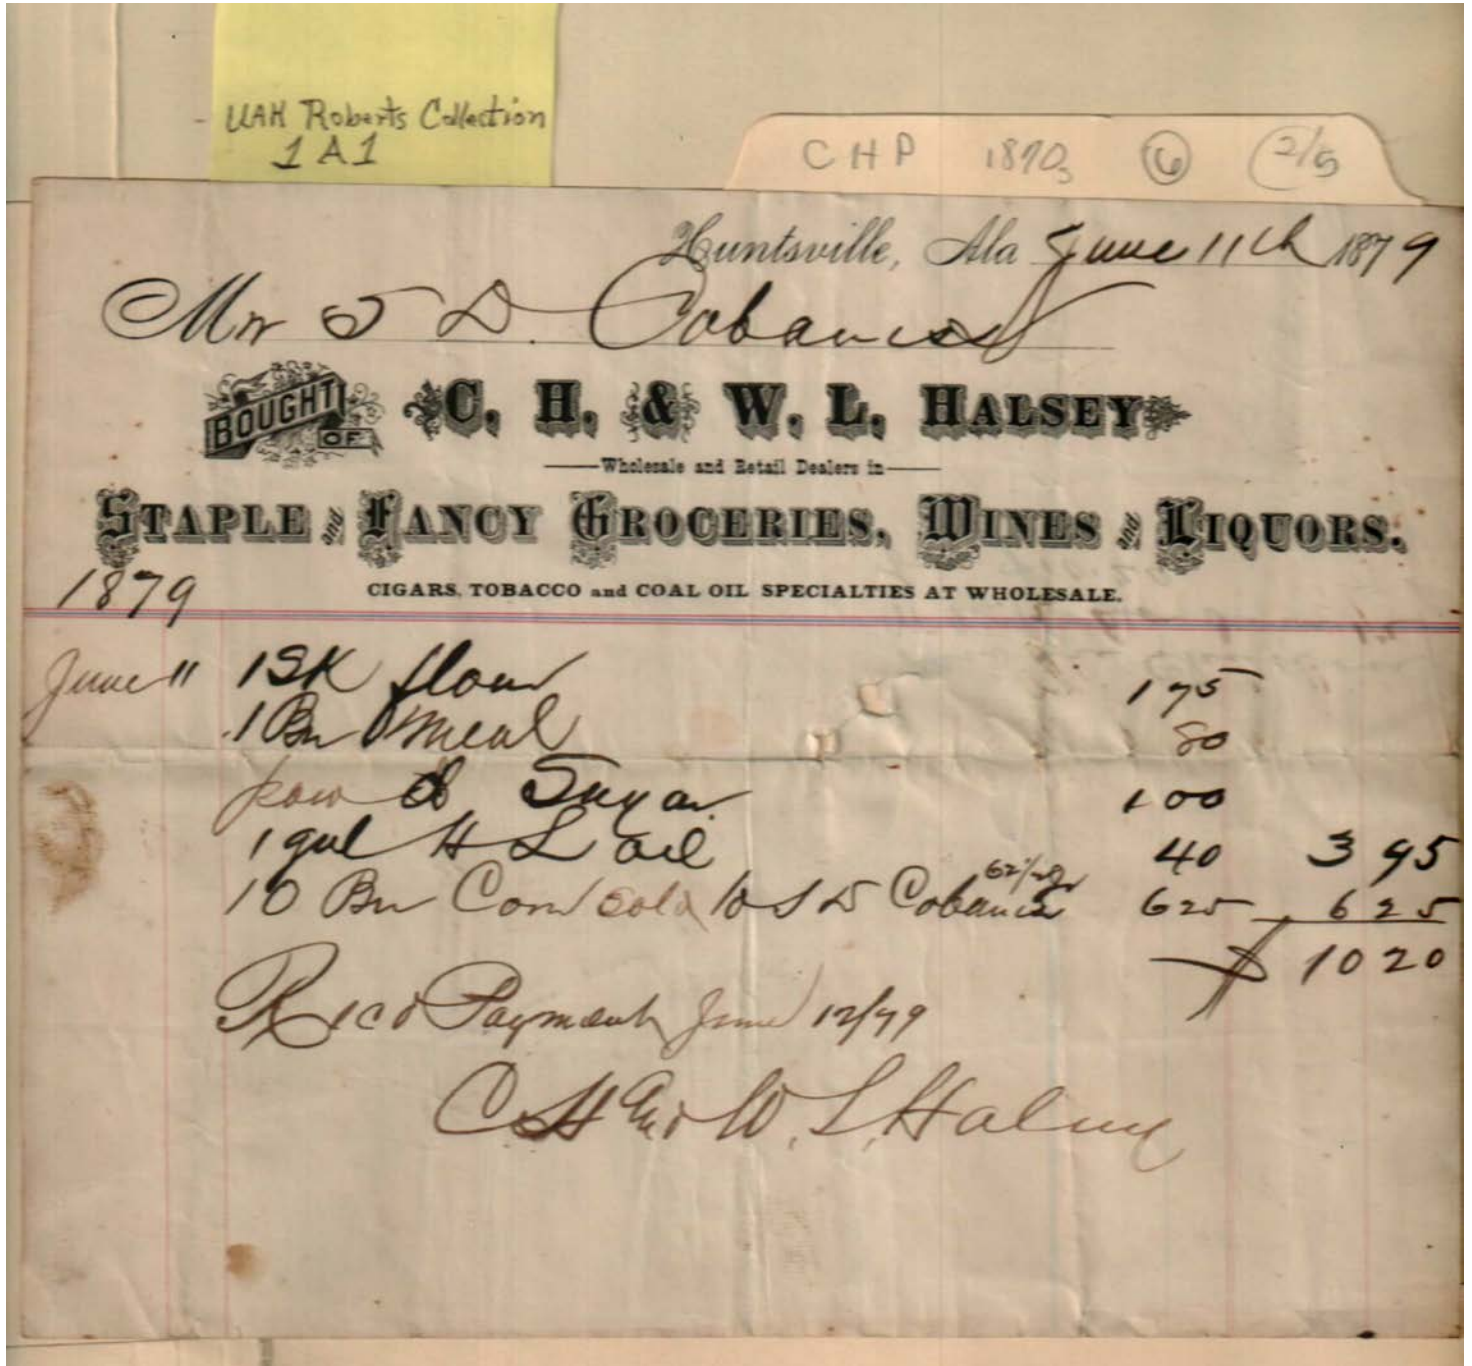 UAH Roberts Collection
1A1
CHP 1870s 6 2/5
Huntsville, Ala June 11th 1879
Mr S D. Cabaniss
BOUGHT OF C. H. & W. L. HALSEY
Wholesale and Retail Dealers in
STAPLE and FANCY GROCERIES, WINES and LIQUORS.
1879
CIGARS, TOBACCO and COAL OIL SPECIALTIES AT WHOLESALE.
June 11 1 SK flour 175
1 Bu Meal 80
pow d Sugar 100
1 gal H L oil 40 3 95
10 Bu Corn sold to S D Cabaniss 62½ 625 625
$ 1020
Recd Payment June 12/79
C H and W. L. Halsey